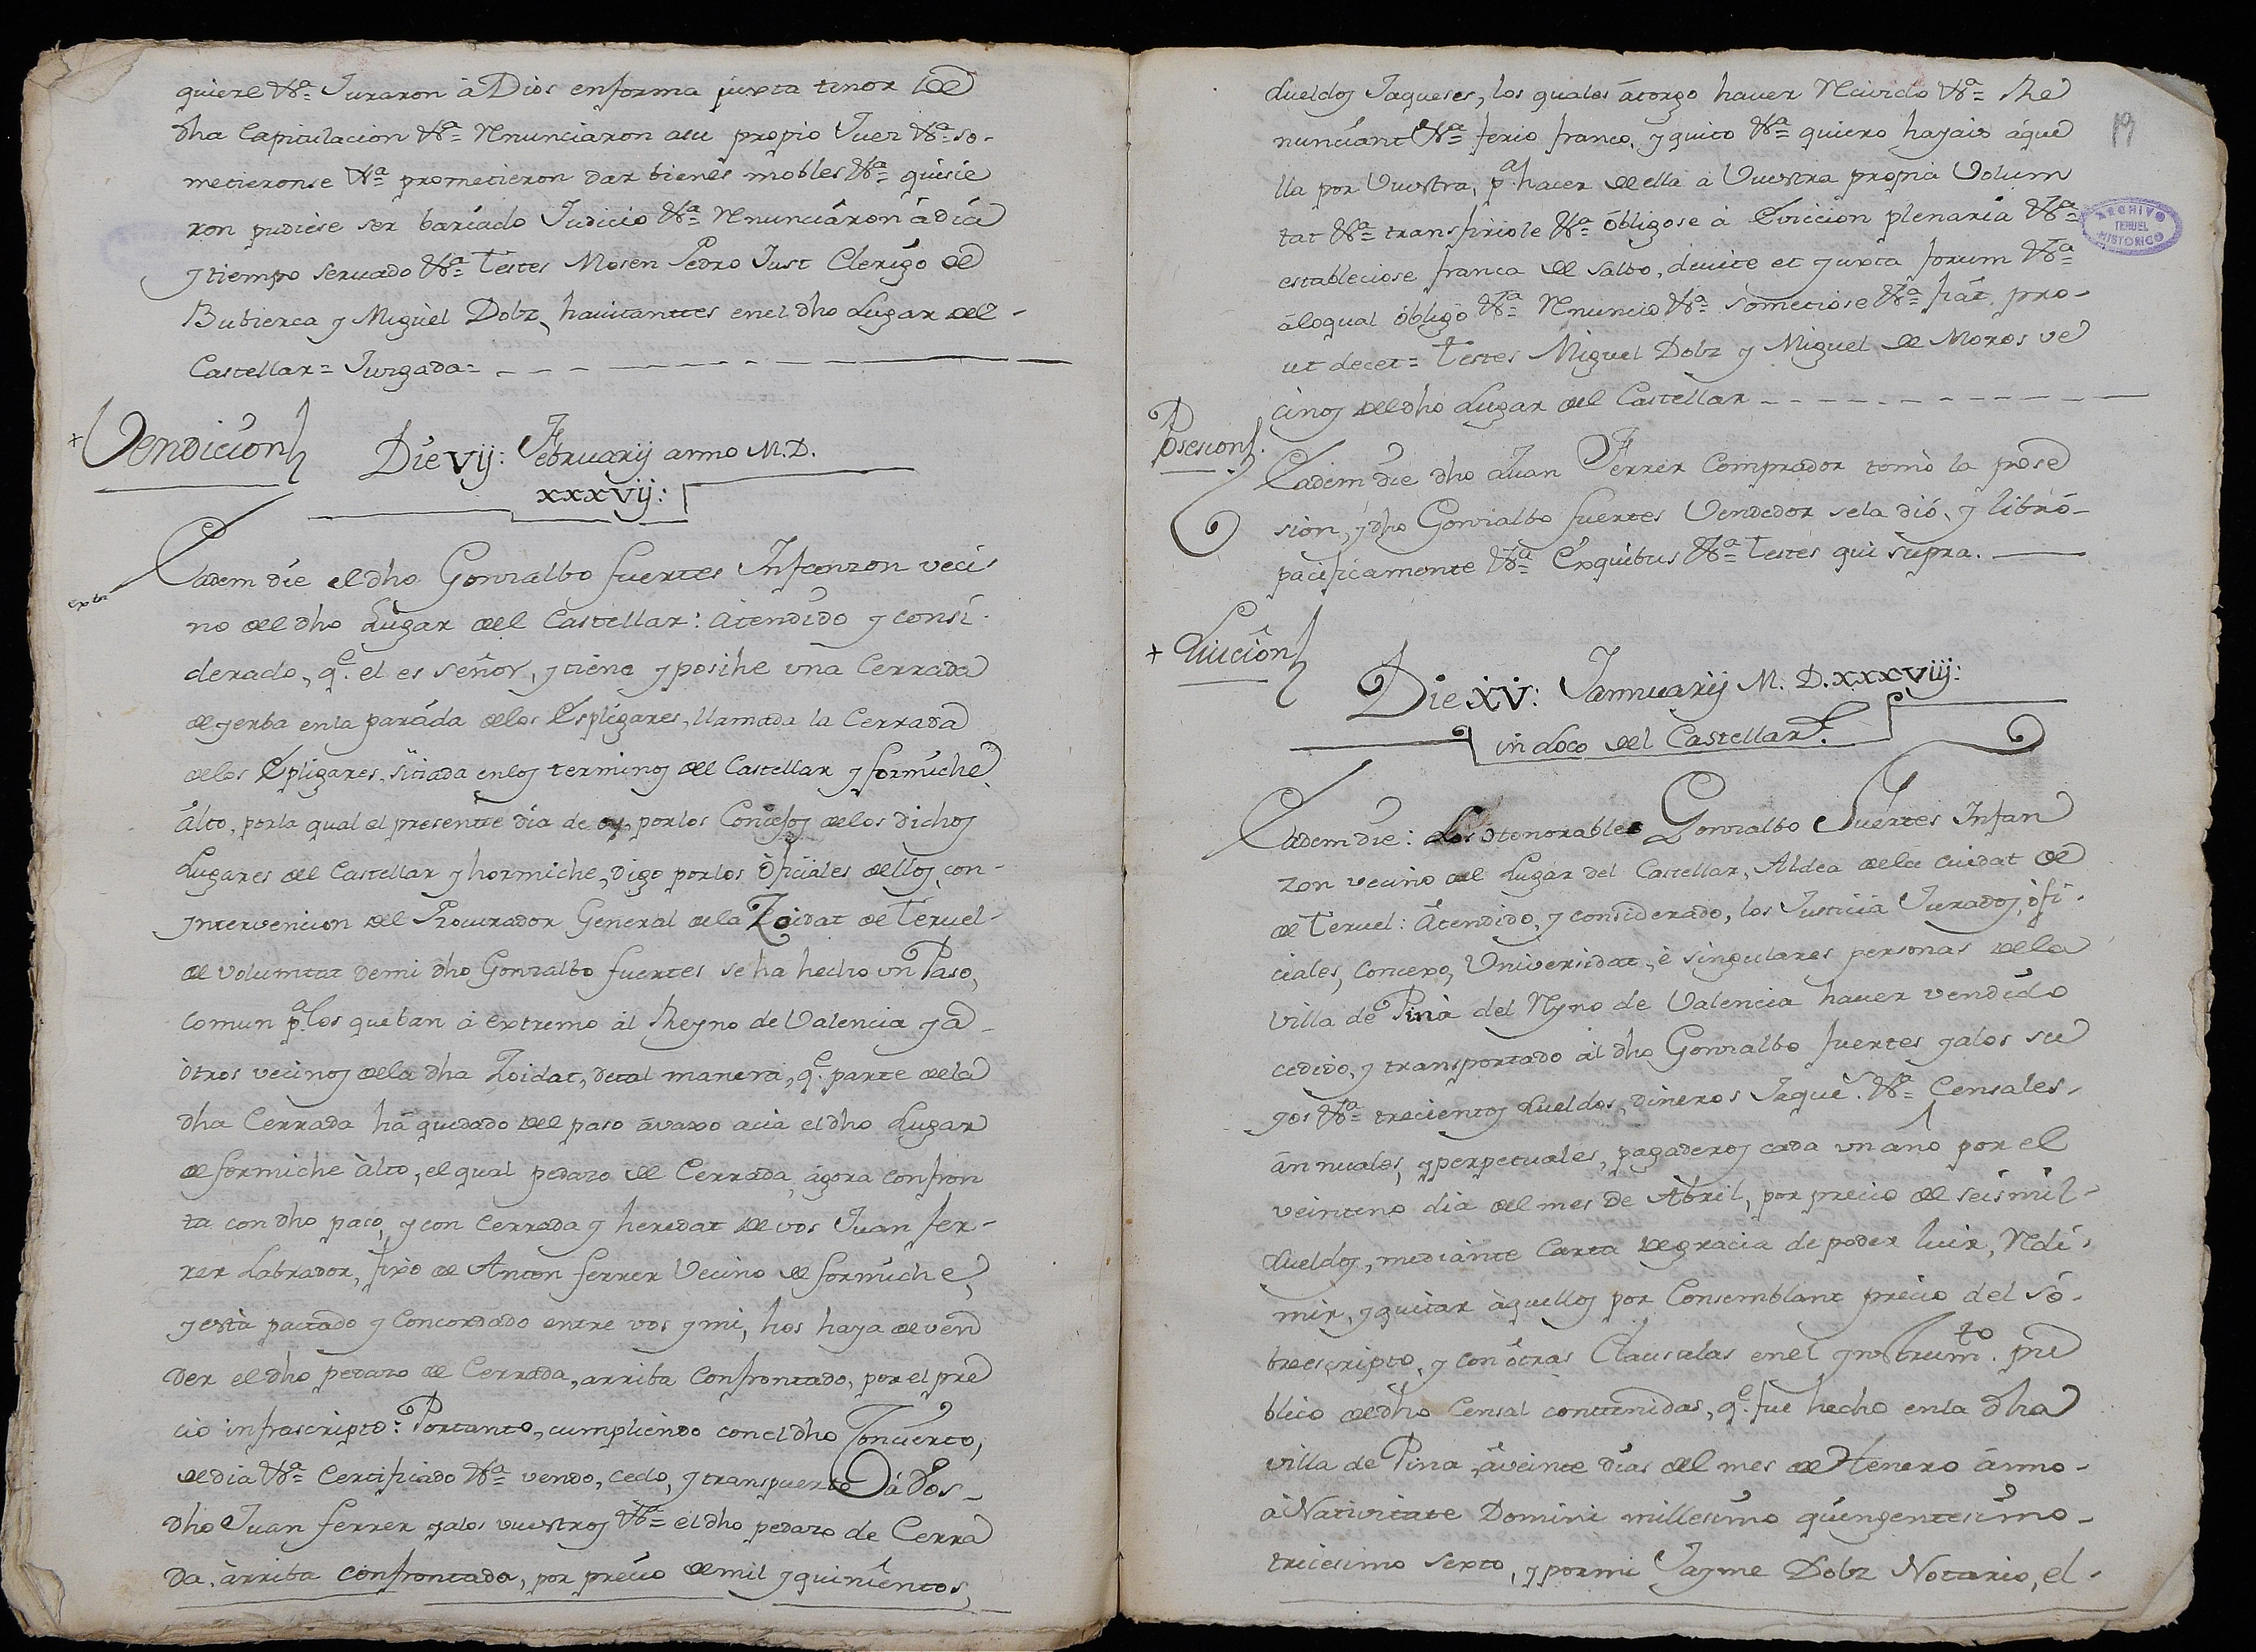 quiere &ª= Juraron à Dios enforma juxta tenor de
dha Capitulacion &ª= Renunciaron asu propio Juez &ª= so-
metieronse &ª= prometieron dar bienes mobles &ª= quisie
ron pudiese ser bariado Judicio &ª= Renunciaron à dia
y tiempo feruado &ª= Testes Mosen Pedro Just Clerigo de
Bubierca y Miguel Dolz, hauitanttes enel dho Lugar del-
Castellar= Jurgada=
+ Vendicion
Die vij: Februarij anno M.D.
xxxvij:
Eadem die el dho Gonzalbo fuertes Infanzon veci-
no del dho Lugar del Castellar: Atendido y consi-
derado, q.e el es señor, y tiene y posihe una Cerrada
de yerba enla parada delos Espligares, llamada la Cerrada
delos Espligares, sitiada enlos terminos del Castellar y formiche
Alto, porla qual el presente dia de oy, porlos Concejos delos dichos
Lugares del Castellar y hormiche, digo porlos òficiales dellos, con-
yntervencion del Procurador General dela Zoidat de Teruel-
de voluntat demi dho Gonzalbo fuertes se ha hecho vn Paso,
comun p.a los queban à extremo àl Reyno de Valencia y à
òtros vecinos dela dha Zoidat, detal manera, q.e parte dela
dha Cerrada hà quedado del paso àvaxo acia el dho Lugar
de formiche àlto, el qual pedazo de Cerrada, àgora confron
ta con dho paso, y con Cerrada y heredat de vos Juan fer-
rer Labrador, fixo de Anton ferrer Vecino de formiche,
y està pactado y Concordado entre vos y mi, hos haya de ven
der el dho pedazo de Cerrada, arriba Confrontado, por el pre
cio infrascripto: Portanto, cumpliendo con el dho Concierto,
dedia &ª= Certificado &ª= vendo, cedo, y transpuerto à Vos-
dho Juan ferrer y alos vuestros &ª= el dho pedazo de Cerra
da, àrriba confrontada, por precio de mil y quinientos,
19
ARCHIVO
TERUEL
HISTORICO
Sueldos Jaqueses, los quales àtorgo hauer Recivido &ª= Re
nunciant &ª= ferio franco, y quito &ª= quiero hayais àque
lla por Vuestra, p.a hacer de ella à Vuestra propia Volun
tat &ª= transfiriole &ª= òbligose à Eviccion plenaria &ª=
establecióse franca de Salbo, deuite et juxta forum &ª=
àloqual òbligò &ª= Renunciò &ª= sometiose &ª= fiat. pro-
ut decet= Testes Miguel Dolz y Miguel de Moros ve
cinos deldho Lugar del Castellar
Posesion
Eadem die dho Juan Ferrer Comprador tomò la pose
sion, y dho Gonzalbo fuertes Vendedor sela dió, y librò-
pacificamente &ª= Exquibus &ª= Testes qui supra.
+ Luicion
Die xv: Jannuarij M. D. xxxviij:
in Loco del Castellar.
Eadem die: Los Honorables Gonzalbo Fuertes Infan
zon vecino del Lugar del Castellar, Aldea dela ciudat de
de Teruel: Atendido, y considerado, los Justicia Jurados, òfi-
ciales, Concexo, Universidat, è singulares personas dela
villa de Pina del Reyno de Valencia hauer vendido
cedido, y transportado àl dho Gonzalbo fuertes y alos su
yos &ª= trecientos Sueldos, dineros Jaque.s &ª= Censales-
ànnuales, y perpetuales, pagaderos cada un año por el
veinteno dia del mes de Abril, por precio de seis mil-
Sueldos, mediante Carta degracia de poder luir, Redi-
mir, y quitar àquellos por Consemblant precio del sò-
breescripto, y con òtras Clausulas enel ynstrum.to pu
blico deldho Censal contenidas, q.e fue hecho enla dha
villa de Pina, àveinte dias del mes de Henero ànno-
à Nativitate Domini millesimo quingentesimo-
tricesimo sexto, y por mi Jayme Dolz Notario, el-